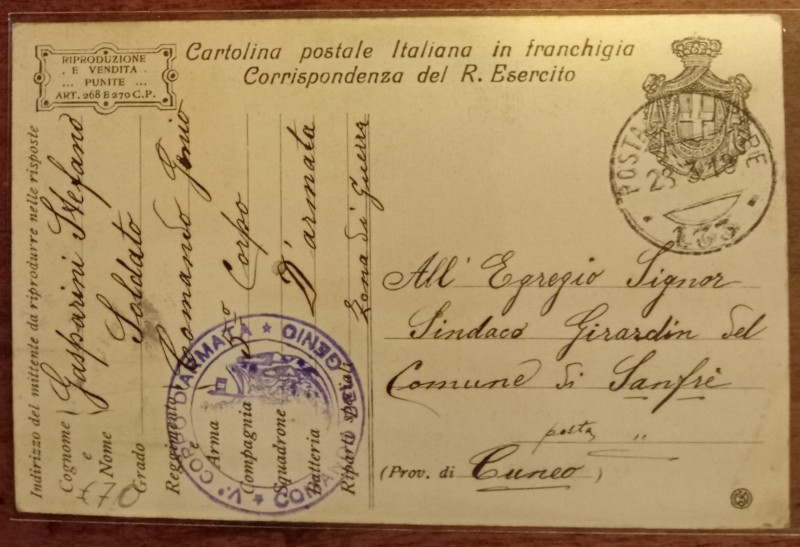 RIPRODUZIONE
. E VENDITA .
... PUNITE ...
ART. 268 E 270 C. P.
Cartolina postale Italiana in franchigia
Corrispondenza del R. Esercito
POSTA MILITARE
23.3.18
133
Indirizzo del mittente da riprodurre nelle risposte
Cognome e Nome Gasparini Stefano
Grado Soldato
Reggimento Comando Genio
e Arma 5º Corpo
Compagnia
Squadrone D'armata
Batteria
Riparti speciali Zona di Guerra
V° CORPO D'ARMATA ★ COMANDO DEL GENIO ★
470
All' Egregio Signor
Sindaco Girardin del
Comune di Sanfrè
posta "
(Prov. di Cuneo)